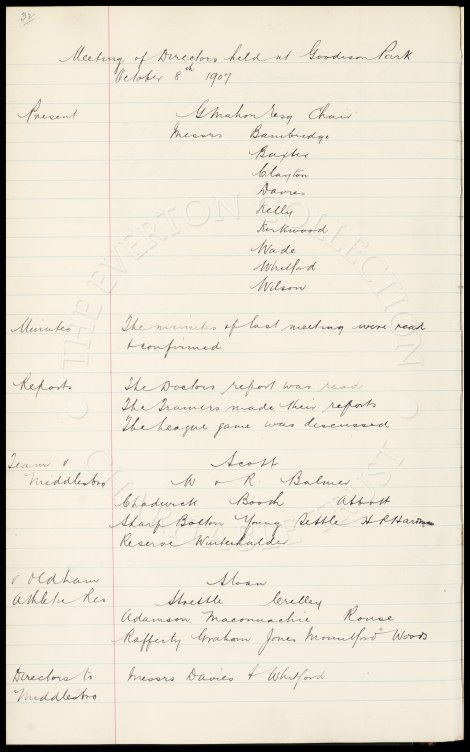 32
Meeting of Directors held at Goodison Park
October 8th 1907
Present G Mahon Esq Chair
Messrs Bainbridge
Baxter
Clayton
Davies
Kelly
Kirkwood
Wade
Whitford
Wilson
Minutes The minutes of last meeting were read
& confirmed
Reports The Doctors report was read
The Trainers made their reports
The League game was discussed
Team v Scott
Middlesbro W & R. Balmer
Chadwick Booth Abbott
Sharp Bolton Young Settle H P Hardman
Reserve Winterhalder
v Oldham Sloan
Athletic Res Strettle Crelley
Adamson Maconnachie Rouse
Rafferty Graham Jones Mountford Woods
Directors to Messrs Davies & Whitford
Middlesbro
THE EVERTON COLLECTION